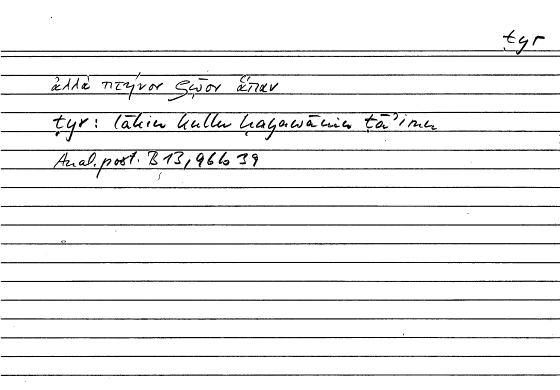 ṭyr
ἀλλὰ πτηνὸν ζῷον ἅπαν
ṭyr: lākin kullu ḥayawānin ṭāʾirin
Anal. post. B 13, 96b39